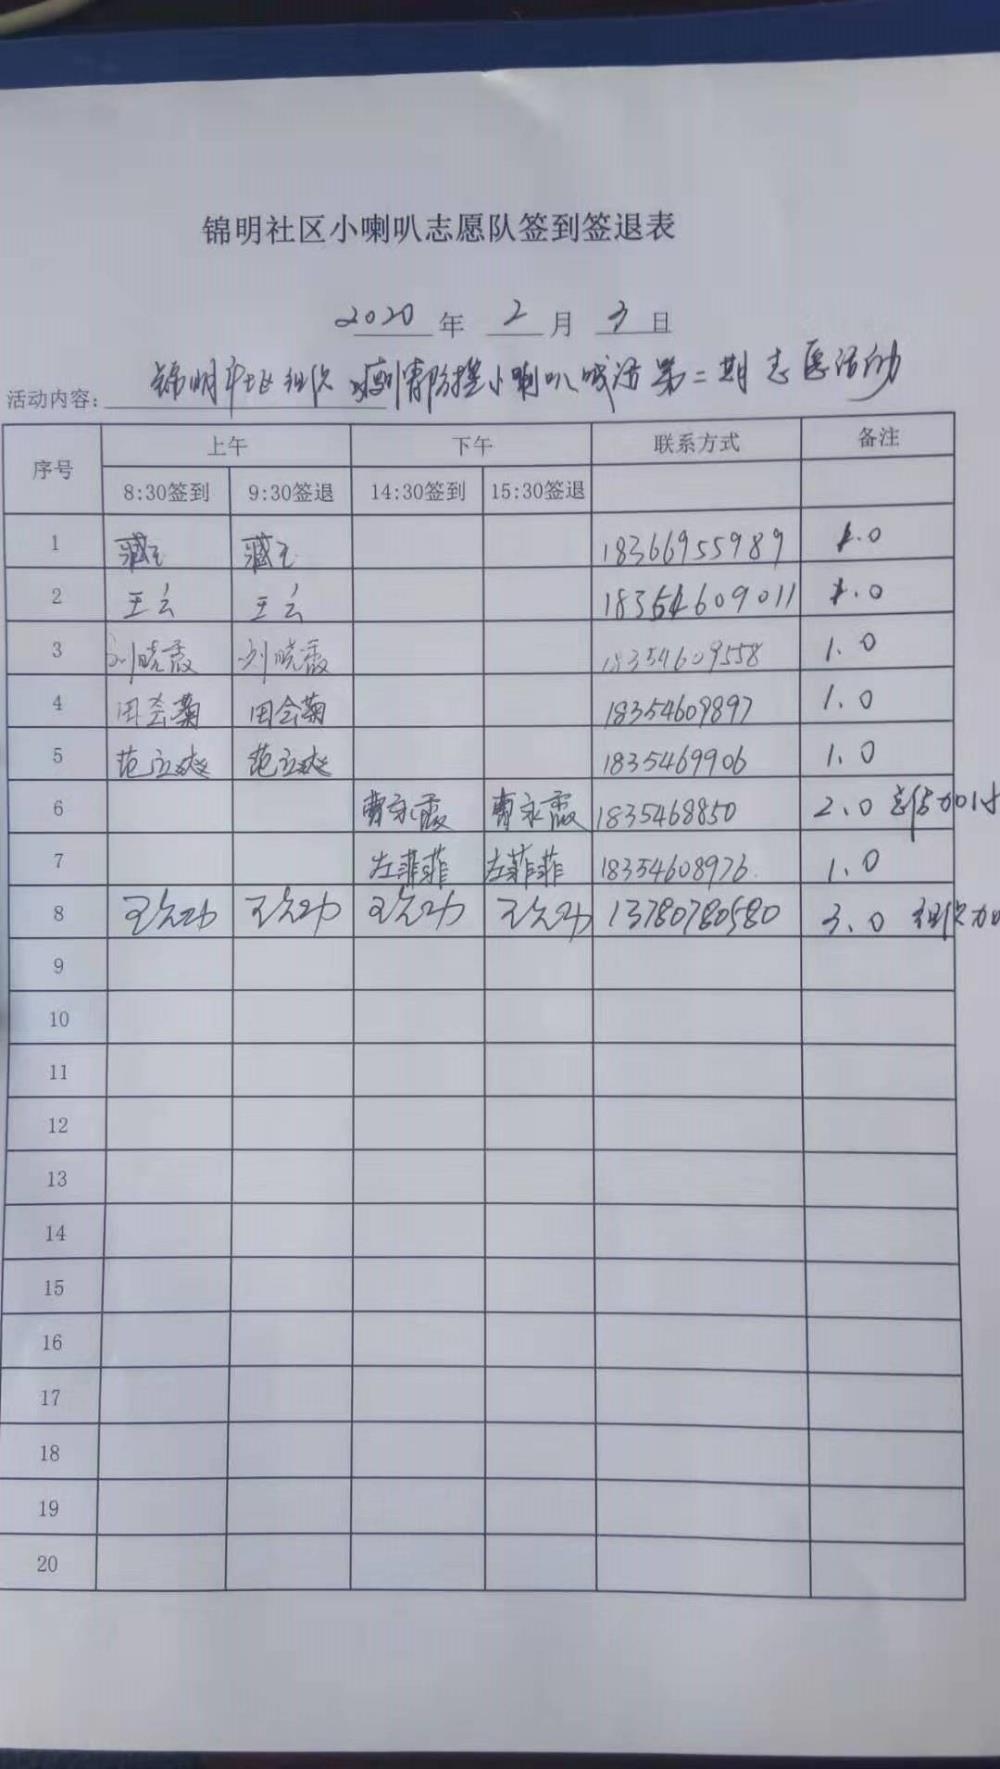 锦明社区小喇叭志愿队签到签退表
2020 年 2 月 3 日
活动内容: 锦明社区组织疫情防控小喇叭喊话第二期志愿活动
序号 上午 下午 联系方式 备注
8:30签到 9:30签退 14:30签到 15:30签退
1 臧玉 臧玉 18366955989 1.0
2 王云 王云 18354609011 1.0
3 刘晓霞 刘晓霞 18354609558 1.0
4 田会菊 田会菊 18354609897 1.0
5 范立 范立 1835469906 1.0
6 曹永霞 曹永霞 1835468850 2.0
7 左菲菲 左菲菲 18354608976 1.0
8 13780780580 3.0 组织加
9
10
11
12
13
14
15
16
17
18
19
20